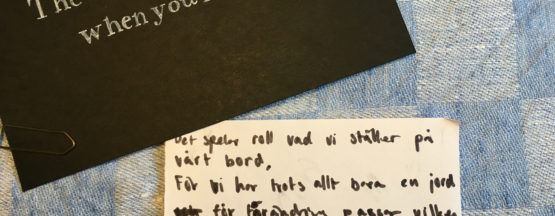 The
when you
Det spelar roll vad vi ställer på
vårt bord,
För vi har trots allt bara en jord
för förändring